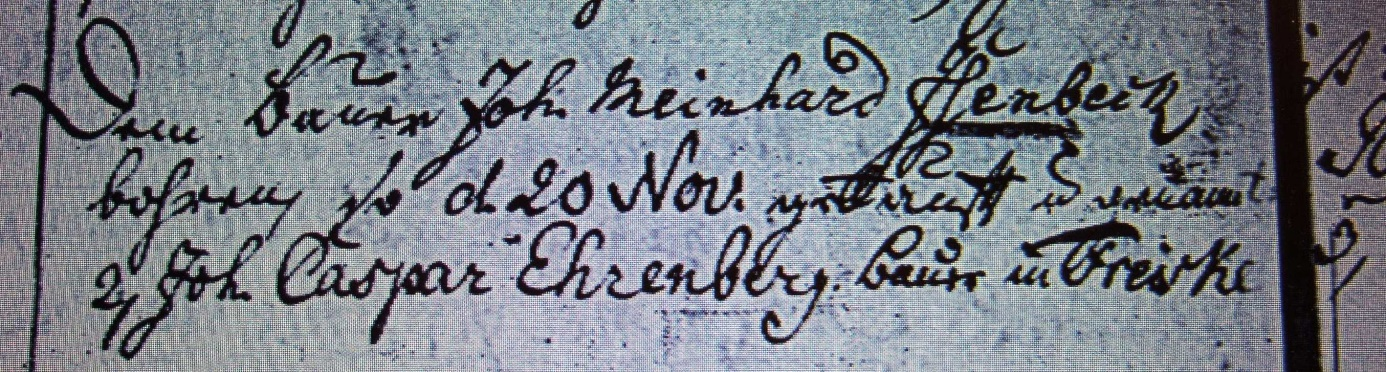 Dem Bauer Joh. Meinhard Isenbeck
bohren, so d. 20 Nov. getaufft u. genant
2, Joh. Caspar Ehrenberg. Bauer in Freiske